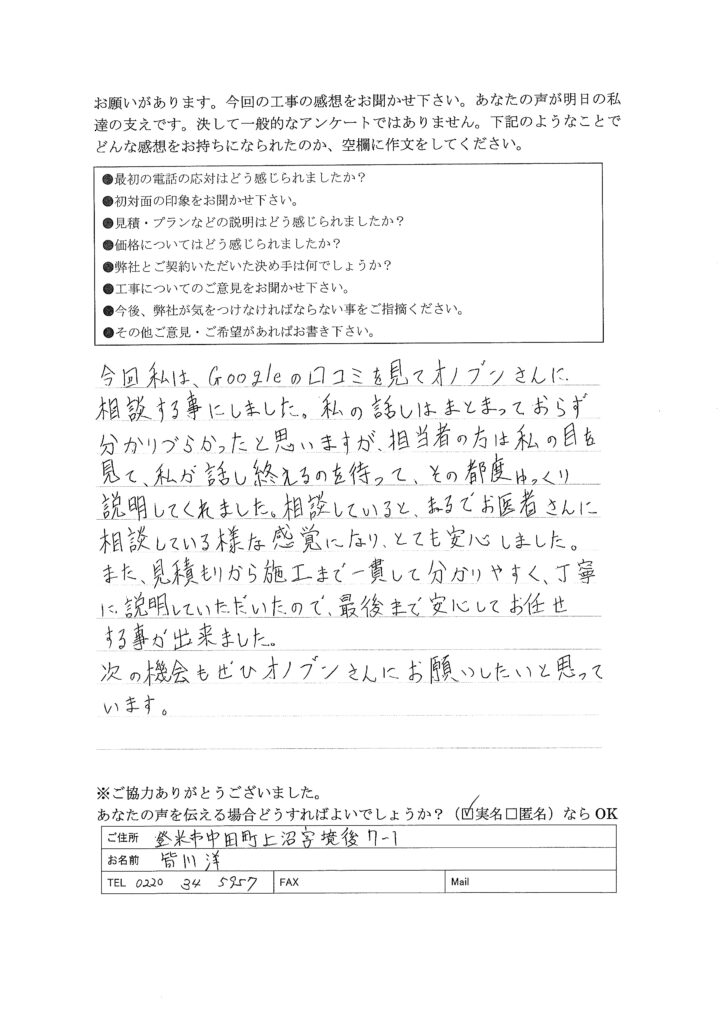 お願いがあります。今回の工事の感想をお聞かせ下さい。あなたの声が明日の私
達の支えです。決して一般的なアンケートではありません。下記のようなことで
どんな感想をお持ちになられたのか、空欄に作文をしてください。
●最初の電話の応対はどう感じられましたか？
●初対面の印象をお聞かせ下さい。
●見積・プランなどの説明はどう感じられましたか？
●価格についてはどう感じられましたか？
●弊社とご契約いただいた決め手は何でしょうか？
●工事についてのご意見をお聞かせ下さい。
●今後、弊社が気をつけなければならない事をご指摘ください。
●その他ご意見・ご希望があればお書き下さい。
今回私は、Googleの口コミを見てオノブンさんに
相談する事にしました。私の話しはまとまっておらず
分かりづらかったと思いますが、担当者の方は私の目を
見て、私が話し終えるのを待って、その都度ゆっくり
説明してくれました。相談していると、まるでお医者さんに
相談している様な感覚になり、とても安心しました。
また、見積もりから施工まで一貫して分かりやすく、丁寧
に説明していただいたので、最後まで安心してお任せ
する事が出来ました。
次の機会もぜひオノブンさんにお願いしたいと思って
います。
※ご協力ありがとうございました。
あなたの声を伝える場合どうすればよいでしょうか？（☑実名□匿名）なら OK
ご住所 登米市中田町上沼字境後7-1
お名前 皆川 洋
TEL 0220 34 5957 FAX Mail